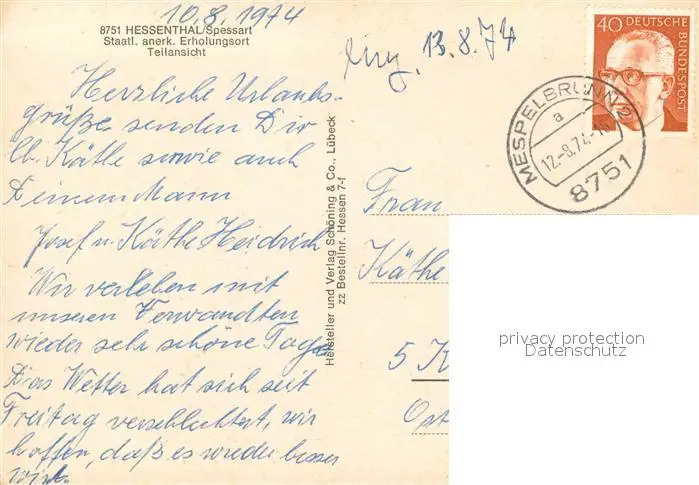 10.8.1974
8751 HESSENTHAL/Spessart
Staatl. anerk. Erholungsort
Teilansicht
Herzliche Urlaubs-
grüße senden Dir
lb. Käthe sowie auch
Deinem Mann
Josef u. Käthe Heidrich
Wir verleben mit
unseren Verwandten
wieder sehr schöne Tage
Das Wetter hat sich seit
Freitag verschlechtert, wir
hoffen, daß es wieder besser
wird.
Hersteller und Verlag Schöning & Co., Lübeck
zz Bestellnr. Hessen 7-f
13.8.74
40 DEUTSCHE
BUNDESPOST
MESPELBRUNN 2
a
12.-8.74-
8751
Frau
Käthe
5 K
Ost
privacy protection
Datenschutz